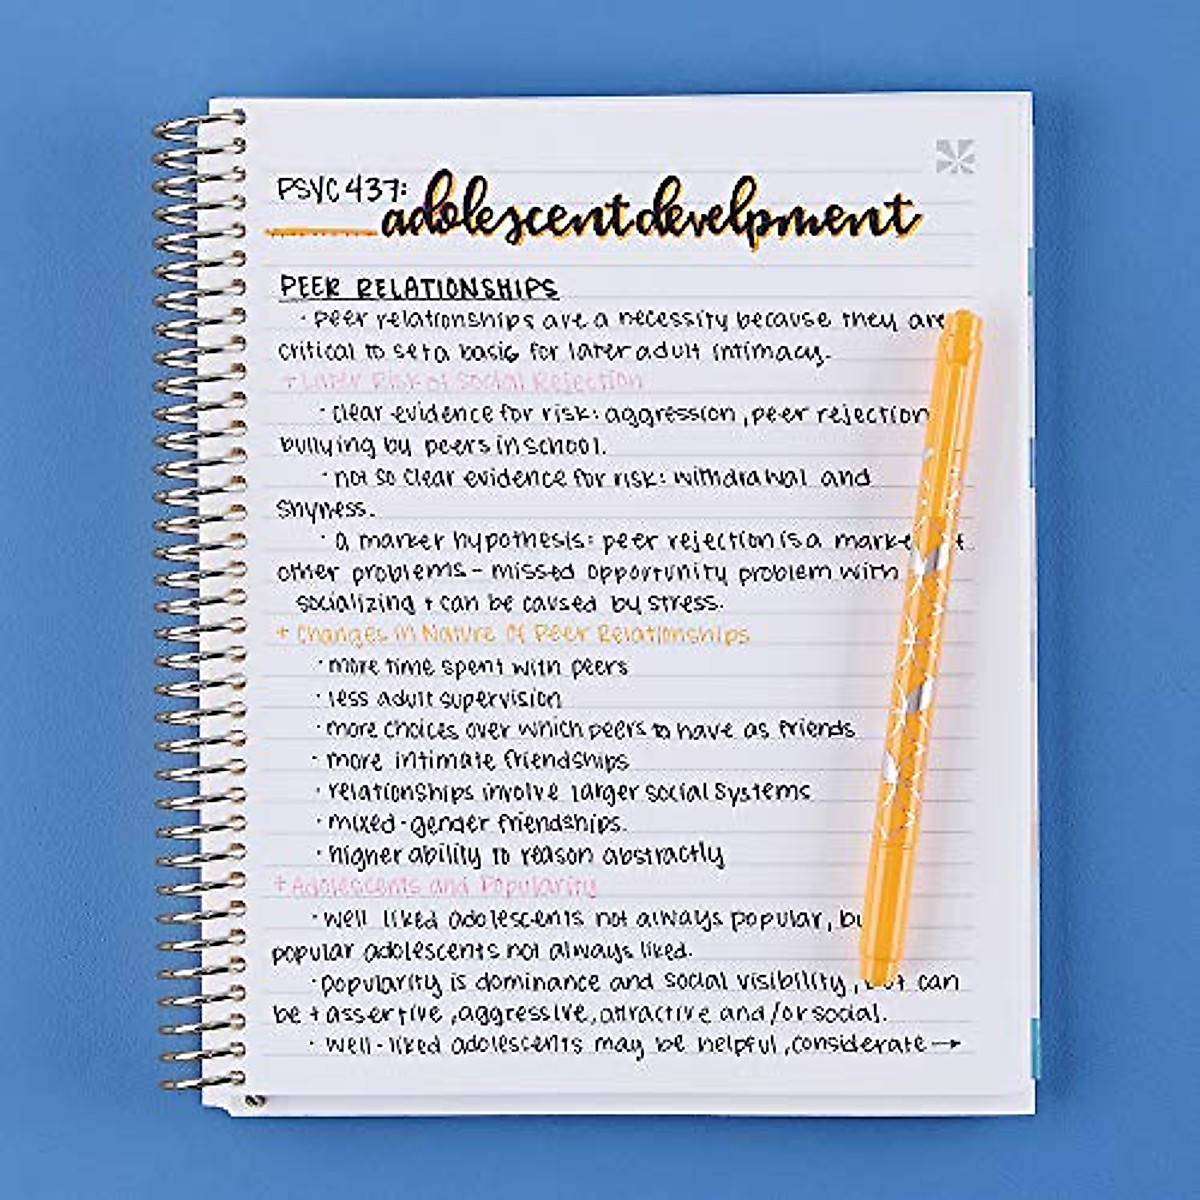 PSYC 437:
adolescent develpment
PEER RELATIONSHIPS
· peer relationships are a necessity because they are
critical to set a basis for later adult intimacy.
+ Later Risk of Social Rejection
· clear evidence for risk: aggression, peer rejection
bullying by peers in school.
· not so clear evidence for risk: withdrawal and
shyness.
· a marker hypothesis: peer rejection is a marke
other problems - missed opportunity problem with
socializing + can be caused by stress.
+ Changes in Nature of Peer Relationships
· more time spent with peers
· less adult supervision
· more choices over which peers to have as friends
· more intimate friendships
· relationships involve larger social systems
· mixed-gender friendships.
· higher ability to reason abstractly
+ Adolescents and Popularity
· well liked adolescents not always popular, bu
popular adolescents not always liked.
· popularity is dominance and social visibility, but can
be + assertive, aggressive, attractive and/or social.
· well-liked adolescents may be helpful, considerate →